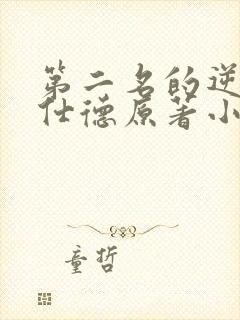 第二名的逆
仕德原著小
童哲